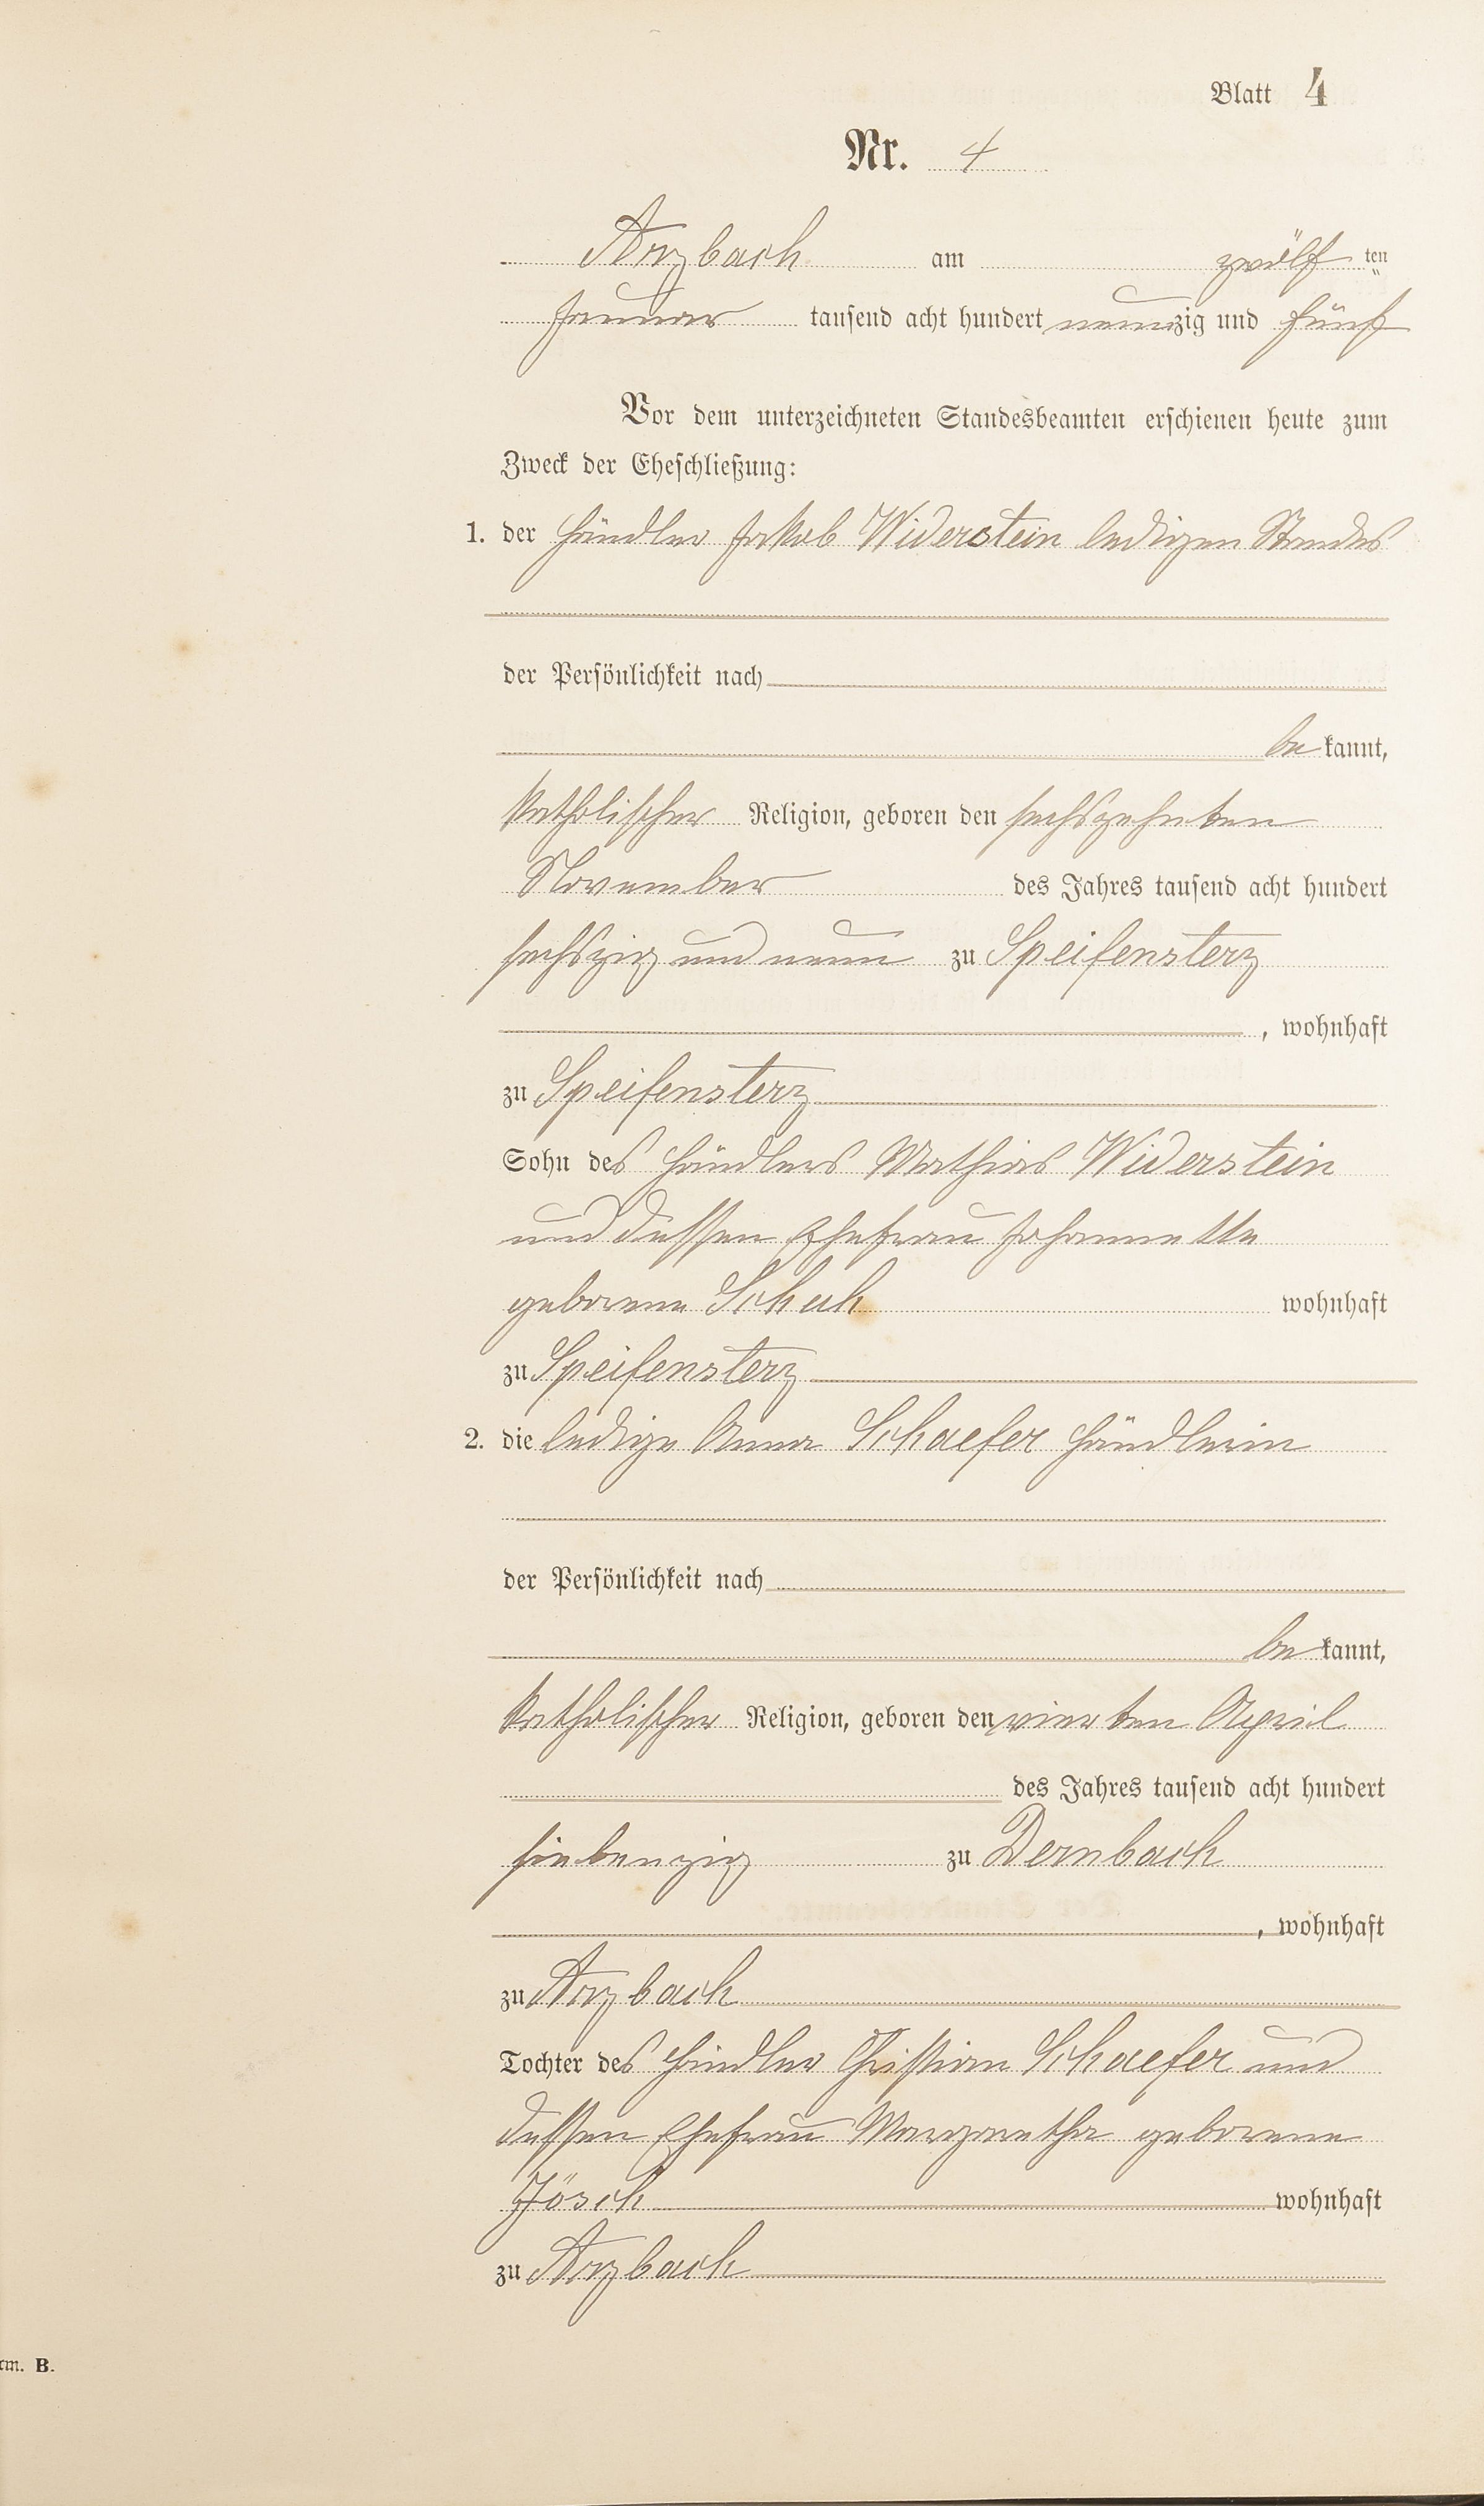 Blatt 4
Nr. 4
Arzbach am zwölf ten
Januar tausend acht hundert neunzig und fünf
Vor dem unterzeichneten Standesbeamten erschienen heute zum
Zweck der Eheschließung:
1. der Händler Jakob Widerstein ledigen Standes
der Persönlichkeit nach
be kannt,
katholischer Religion, geboren den sechszehnten
November des Jahres tausend acht hundert
sechszig und neun zu Speifensterz
, wohnhaft
zu Speifensterz
Sohn des Händlers Mathias Widerstein
und dessen Ehefrau Johannette
geborene Schuh wohnhaft
zu Speifensterz
2. die ledige Anna Schaefer Händlerin
der Persönlichkeit nach
be kannt,
katholischer Religion, geboren den vierten April
des Jahres tausend acht hundert
siebenzig zu Dernbach
, wohnhaft
zu Arzbach
Tochter des Händler Christian Schaefer und
dessen Ehefrau Margaretha geborene
Jösch wohnhaft
zu Arzbach
rm. B.